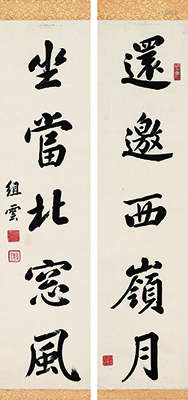 還邀西嶺月
坐當北窓風
組雲